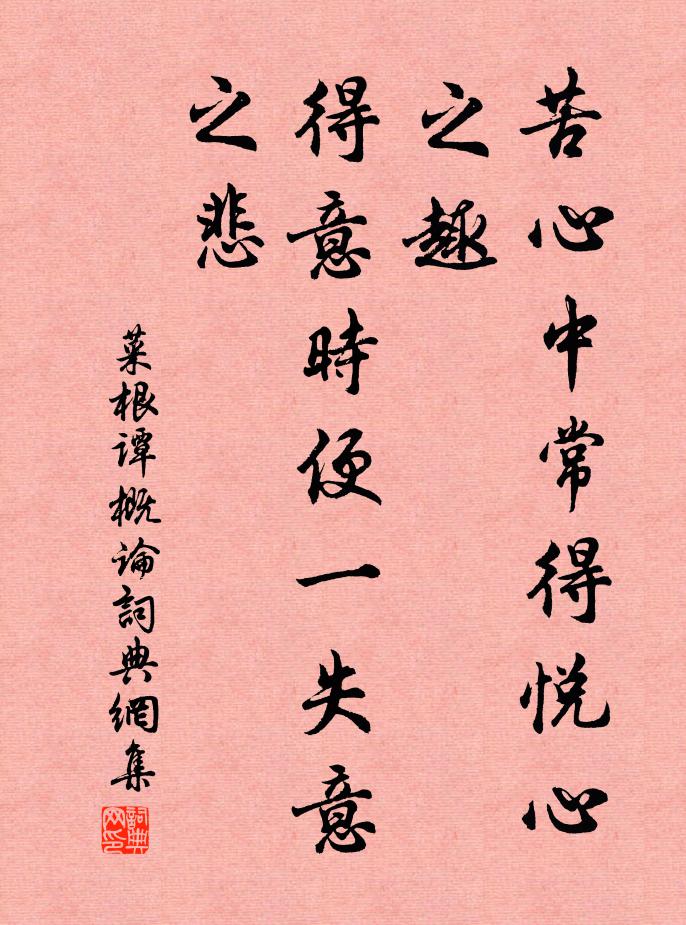 苦心中常得悦心
之趣
得意時便一失意
之悲
菜根谭概论詞典網集
詞典网印